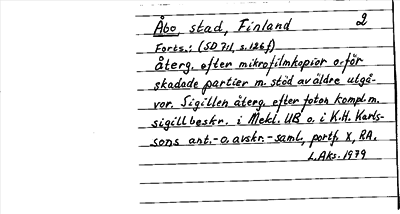 Åbo, stad, Finland 2
Forts.: (SD 711, s. 126 f)
återg. efter mikrofilmkopior o. för
skadade partier m. stöd av äldre utgå-
vor. Sigillen återg. efter foton kompl. m.
sigillbeskr. i Mekl. UB o. i K.H. Karls-
sons ant.- o. avskr.-saml., portf. X, RA.
L.Aks. 1979